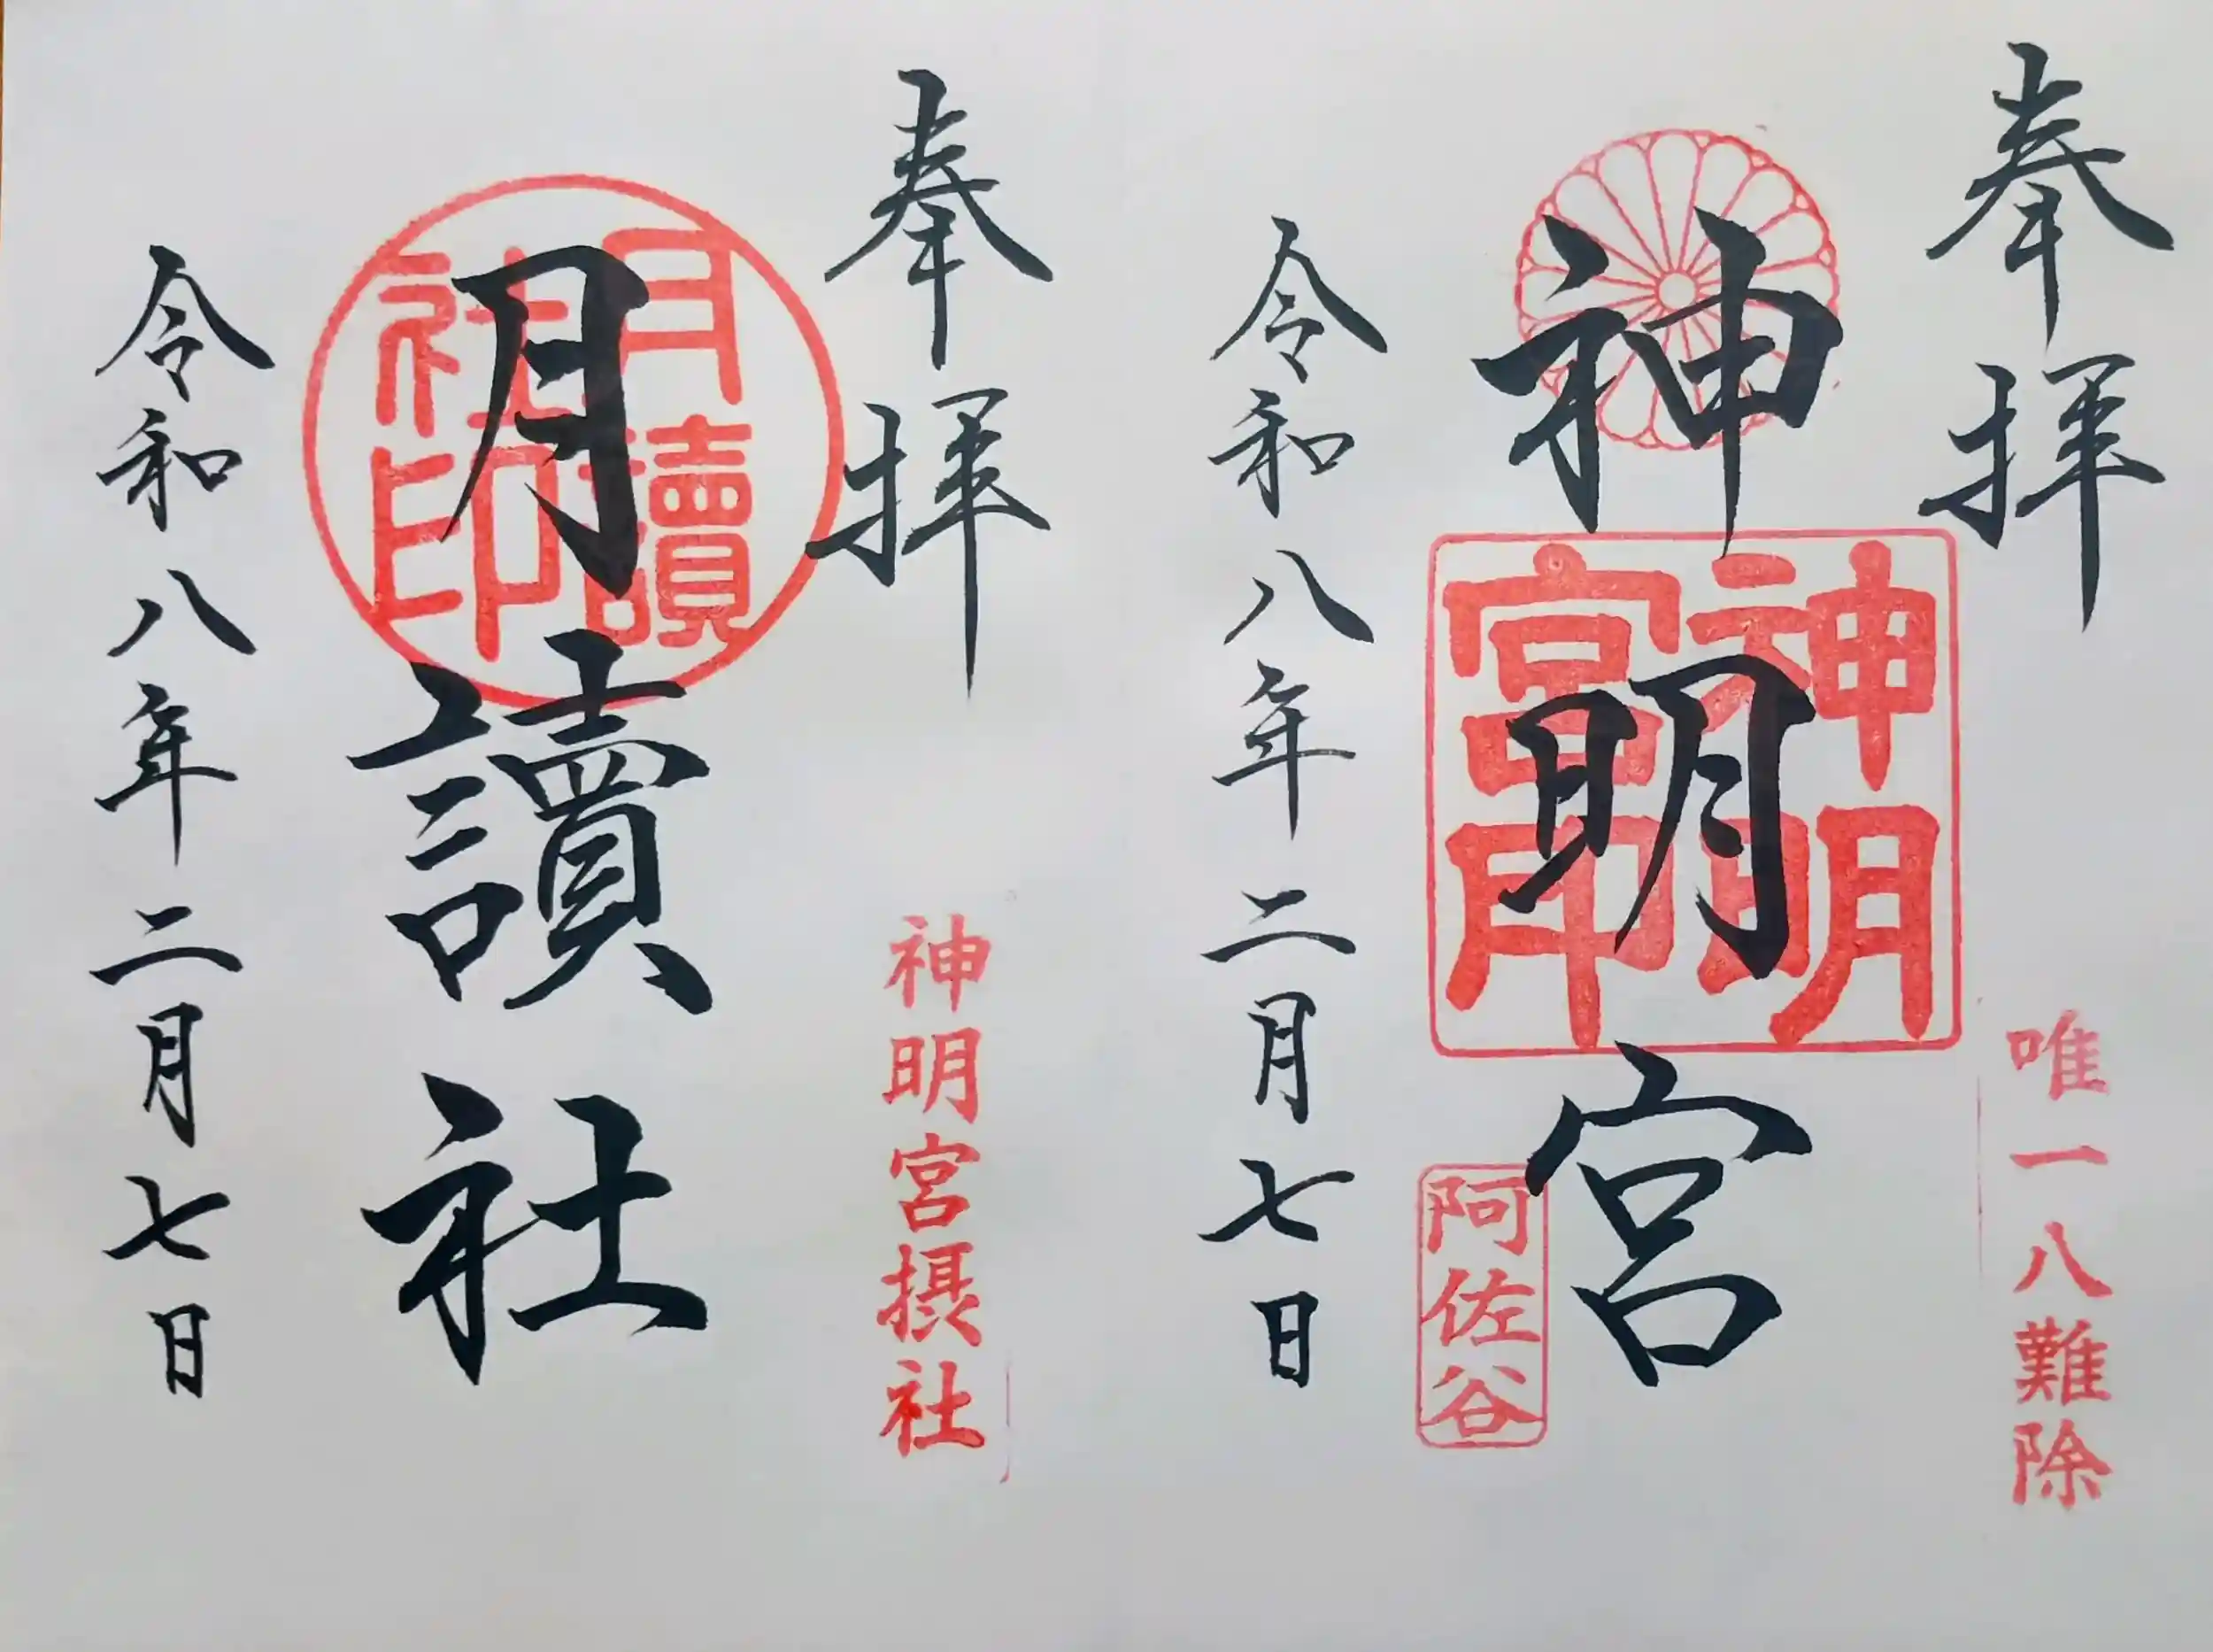 奉拝
神明宮
神明宮印
唯一八難除
阿佐谷
令和八年二月七日
奉拝
月讀社
月讀社印
神明宮摂社
令和八年二月七日